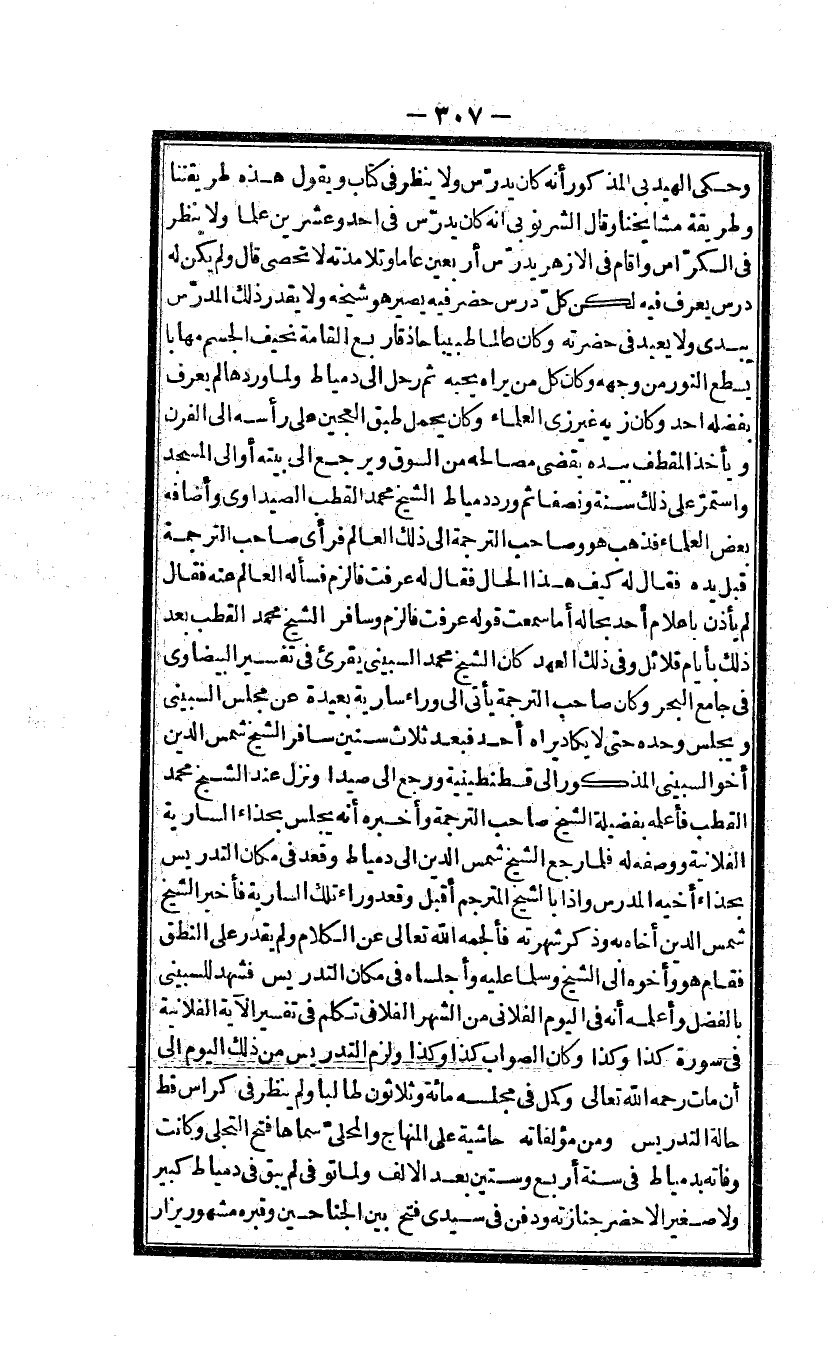 — ٣٠٧ —
وحكى الهيدبى المذكور أنه كان يدرّس ولا ينظر فى كتاب ويقول هذه طريقتنا
وطريقة مشايخنا وقال الشرنوبى انه كان يدرّس فى احد وعشرين علما ولا ينظر
فى الكرّاس واقام فى الازهر يدرّس أربعين عاما وتلامذته لا تحصى قال ولم يكن له
درس يعرف فيه لكن كلّ درس حضر فيه يصير هو شيخه ولا يقدر ذلك المدرّس
يبدى ولا يعيد فى حضرته وكان عالما طبيبا حاذقا ربع القامة نحيف الجسم مهابا
يسطع النور من وجهه وكان كل من يراه يحبه ثم رحل الى دمياط ولما وردها لم يعرف
بفضله احد وكان زيه غير زى العلماء وكان يحمل طبق العجين على رأسه الى الفرن
ويأخذ المقطف بيده يقضى مصالحه من السوق ويرجع الى بيته أو الى المسجد
واستمرّ على ذلك سنة ونصفا ثم ورد دمياط الشيخ محمد القطب الصيداوى وأضافه
بعض العلماء فذهب هو وصاحب الترجمة الى ذلك العالم فرأى صاحب الترجمة
قبل يده فقال له كيف هذا الحال فقال له عرفت فالزم فسأله العالم عنه فقال
لم يأذن باعلام أحد بحاله أما سمعت قوله عرفت فالزم وسافر الشيخ محمد القطب بعد
ذلك بأيام قلائل وفى ذلك العهد كان الشيخ محمد السبينى يقرئ فى تفسير البيضاوى
فى جامع البحر وكان صاحب الترجمة يأتى الى وراء سارية بعيدة عن مجلس السبينى
ويجلس وحده حتى لا يكاد يراه أحد فبعد ثلاث سنين سافر الشيخ شمس الدين
أخو السبينى المذكور الى قسطنطينية ورجع الى صيدا ونزل عند الشيخ محمد
القطب فأعلمه بفضيلة الشيخ صاحب الترجمة وأخبره أنه يجلس بحذاء السارية
الفلانية ووصفه له فلما رجع الشيخ شمس الدين الى دمياط وقعد فى مكان التدريس
بحذاء أخيه المدرس واذا بالشيخ المترجم أقبل وقعد وراء تلك السارية فأخبر الشيخ
شمس الدين أخاه به وذكر شهرته فألجمه الله تعالى عن الكلام ولم يقدر على النطق
فقام هو وأخوه الى الشيخ وسلما عليه وأجلساه فى مكان التدريس فشهد للسبينى
بالفضل وأعلمه أنه فى اليوم الفلانى من الشهر الفلانى تكلم فى تفسير الآية الفلانية
فى سورة كذا وكذا وكان الصواب كذا وكذا ولزم التدريس من ذلك اليوم الى
أن مات رحمه الله تعالى وكمل فى مجلسه مائة وثلاثون طالبا ولم ينظر فى كراس قط
حالة التدريس ومن مؤلفاته حاشية على المنهاج والمحلىّ سماها فتح التجلى وكانت
وفاته بدمياط فى سنة أربع وستين بعد الالف ولما توفى لم يبق فى دمياط كبير
ولا صغير الا حضر جنازته ودفن فى سيدى فتح بين الجناحين وقبره مشهور يزار